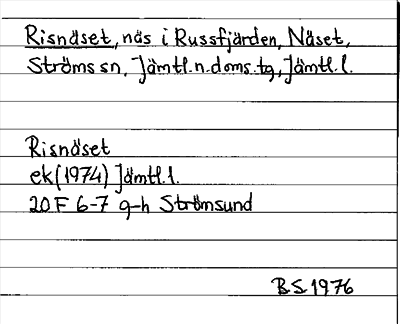 Risnäset, näs i Russfjärden, Näset,
Ströms sn, Jämtl.n.doms.tg, Jämtl.l.
Risnäset
ek (1974) Jämtl.l.
20 F 6-7 g-h Strömsund
B.S. 1976